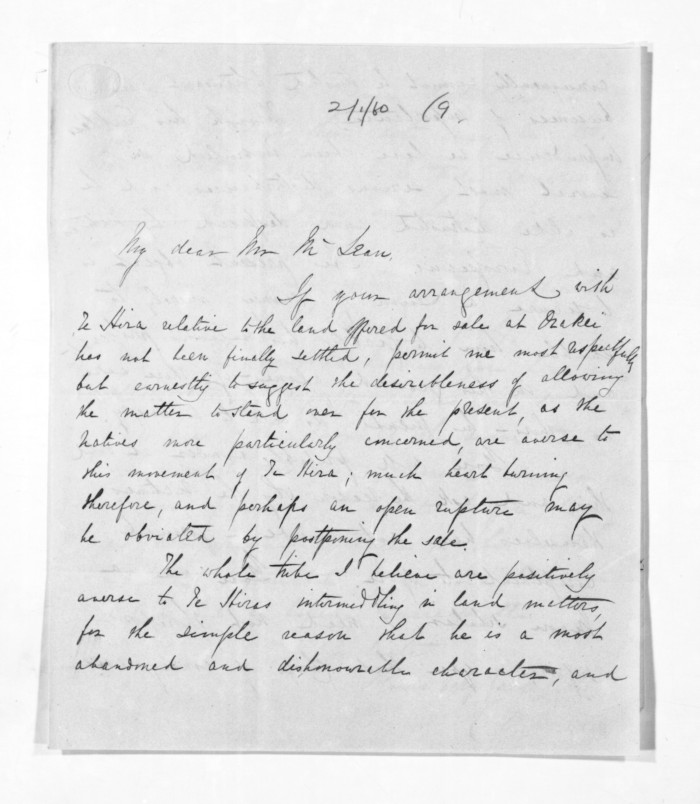 2/1/60 (9.
My dear Mr McLean.
If your arrangement with
Te Hira relative to the land offered for sale at Orakei
has not been finally settled, permit me most respectfully
but earnestly to suggest the desirebleness of allowing
the matter to stand over for the present, as the
natives more particularly concerned, are averse to
this movement of Te Hira; much heart burning
therefore, and perhaps an open rupture may
be obviated by postponing the sale.
The whole tribe I believe are positively
averse to Te Hiras intermeddling in land matters,
for the simple reason that he is a most
abandoned and dishonourable character, and